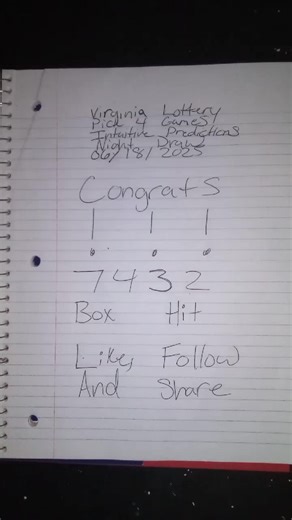 Virginia Lottery
Pick 4 Games
Intuitive Predictions
Night Draw
06/18/2025
Congrats
! ! !
7432
Box Hit
Like, Follow
And Share